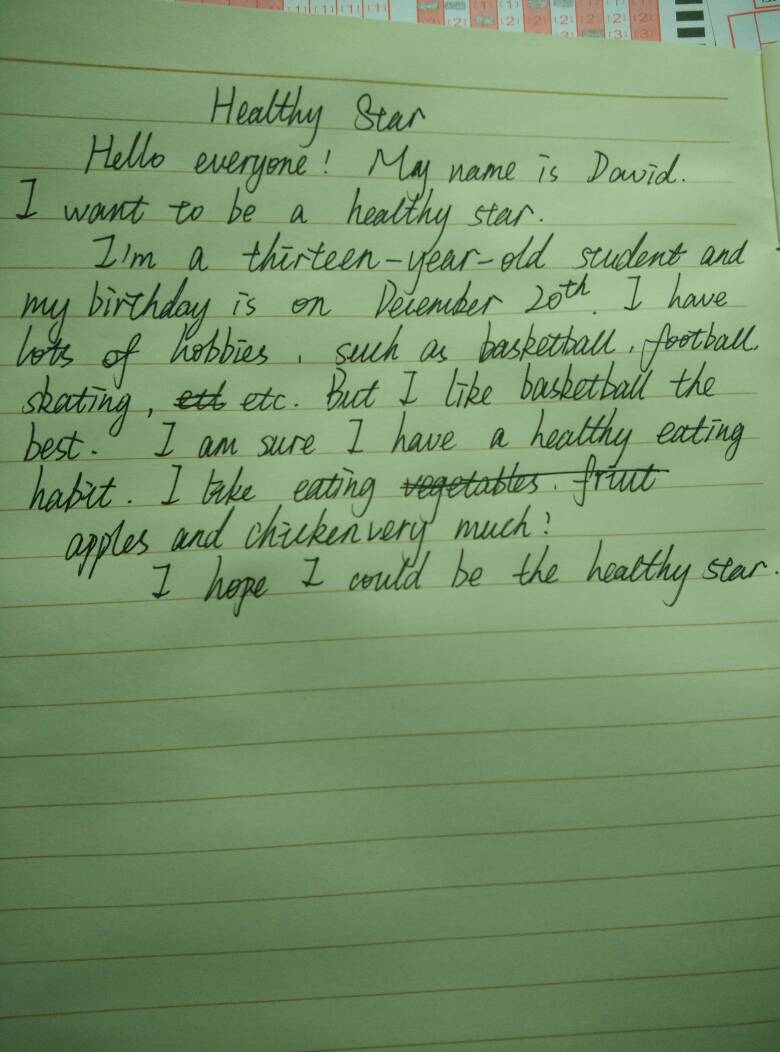 Healthy Star
Hello everyone! My name is David.
I want to be a healthy star.
I'm a thirteen-year-old student and
my birthday is on December 20th. I have
lots of hobbies, such as basketball, football,
skating, etc. But I like basketball the
best. I am sure I have a healthy eating
habit. I like eating vegetables. fruit
apples and chicken very much!
I hope I could be the healthy star.